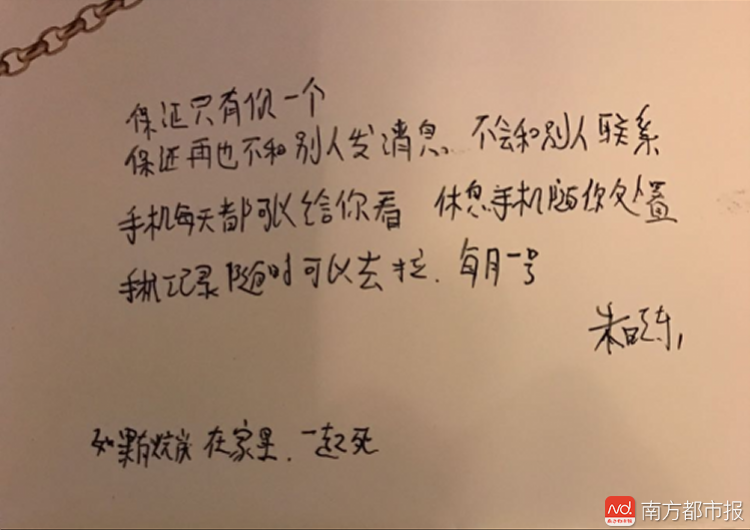 保证只有你一个
保证再也不和别人发消息 不会和别人联系
手机每天都可以给你看 休息手机随你处置
手机记录随时可以去拉．每月一号
朱晓东，
如果有 在家里．一起死
N!
南方都市报